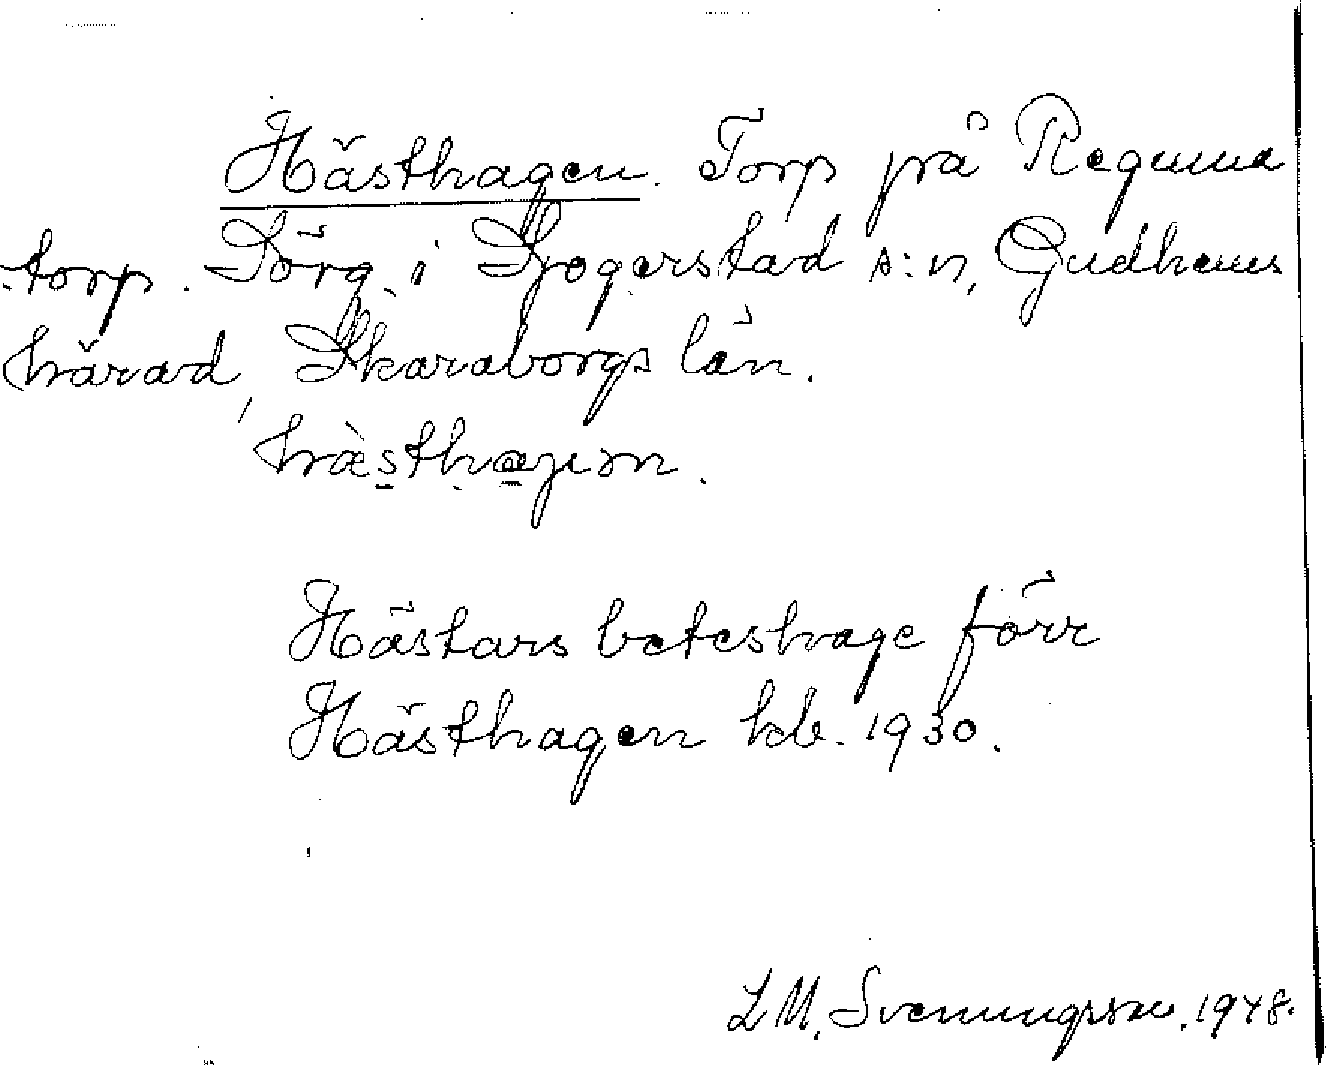 Hästhagen. Torp på Regumatorp. Sörg. i Sjogerstad s:n, Gudhems
härad, Skaraborgs län.
hæ̀sthagen.
Hästars beteshage förr
Hästhagen kb. 1930.
L M. Svenungsson. 1948.